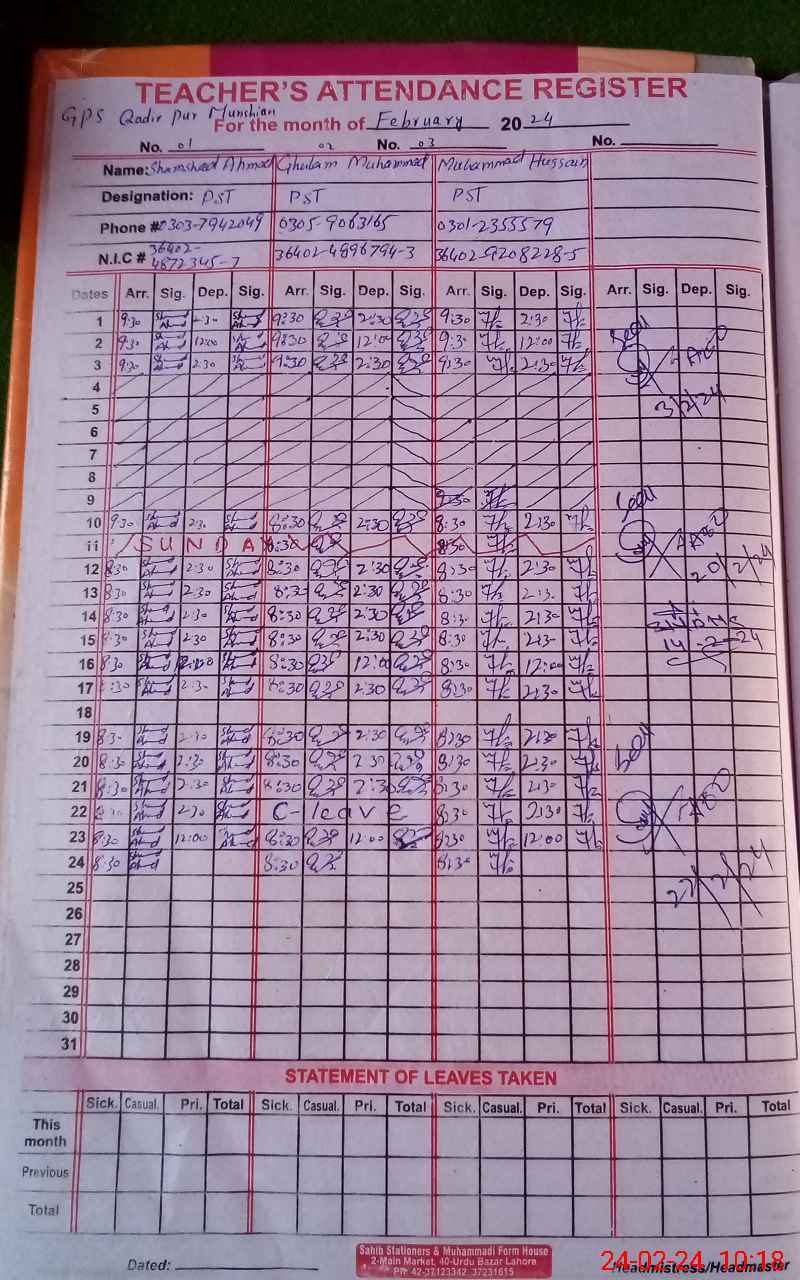 TEACHER'S ATTENDANCE REGISTER
GPS Qadir Pur Munshian
For the month of February 2024
No. 01 02 No. 03 No.
Name: Shamshad Ahmad Ghulam Muhammad Muhammad Hussain
Designation: PST PST PST
Phone # 0303-7942049 0305-9063165 0301-2355579
N.I.C # 36402-4872345-7 36402-4896794-3 36402-9208228-5
Dates Arr. Sig. Dep. Sig. Arr. Sig. Dep. Sig. Arr. Sig. Dep. Sig. Arr. Sig. Dep. Sig.
1 9:30 2:30 9:30 2:30 9:30 2:30
2 9:30 12:00 9:30 12:00 9:30 12:00 Seen
3 9:30 2:30 9:30 2:30 9:30 2:30 AEO
4 3/2/24
5
6
7
8
9 8:30 Seen
10 9:30 2:30 8:30 2:30 8:30 2:30 AEO
11 SUNDAY 8:30 8:30
12 8:30 2:30 8:30 2:30 8:30 2:30 20/2/24
13 8:30 2:30 8:30 2:30 8:30 2:3
14 8:30 2:30 8:30 2:30 8:30 2:30
15 8:30 2:30 8:30 2:30 8:30 2:30 14-2-24
16 8:30 8:30 12:00 8:30 12:00
17 8:30 2:30 8:30 2:30 8:30 2:30
18
19 8:30 2:30 8:30 2:30 8:30 2:30 Seen
20 8:30 2:30 8:30 2:30 8:30 2:30
21 8:30 2:30 8:30 2:30 8:30 2:30 AEO
22 8:30 2:30 C-leave 8:30 2:30
23 8:30 12:00 8:30 12:00 8:30 12:00
24 8:30 8:30 8:30 22/2/24
25
26
27
28
29
30
31
STATEMENT OF LEAVES TAKEN
Sick. Casual. Pri. Total Sick. Casual. Pri. Total Sick. Casual. Pri. Total Sick. Casual. Pri. Total
This month
Previous
Total
Dated:
Sahib Stationers & Muhammadi Form House
2-Main Market, 40-Urdu Bazar Lahore
PH: 42-37123342, 37231615
24-02-24 10:18
Headmistress/Headmaster